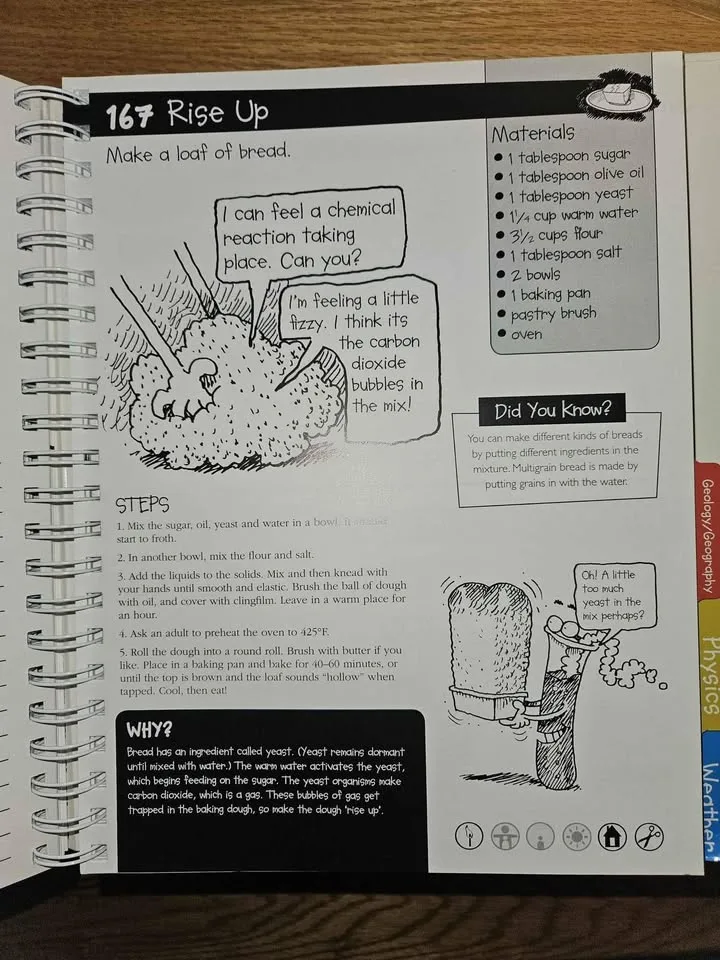 167 Rise Up
Make a loaf of bread.
Materials
• 1 tablespoon sugar
• 1 tablespoon olive oil
• 1 tablespoon yeast
• 1 1/4 cup warm water
• 3 1/2 cups flour
• 1 tablespoon salt
• 2 bowls
• 1 baking pan
• pastry brush
• oven
I can feel a chemical
reaction taking
place. Can you?
I'm feeling a little
fizzy. I think its
the carbon
dioxide
bubbles in
the mix!
Did You Know?
You can make different kinds of breads
by putting different ingredients in the
mixture. Multigrain bread is made by
putting grains in with the water.
STEPS
1. Mix the sugar, oil, yeast and water in a bowl.
start to froth.
2. In another bowl, mix the flour and salt.
3. Add the liquids to the solids. Mix and then knead with
your hands until smooth and elastic. Brush the ball of dough
with oil, and cover with clingfilm. Leave in a warm place for
an hour.
4. Ask an adult to preheat the oven to 425°F.
5. Roll the dough into a round roll. Brush with butter if you
like. Place in a baking pan and bake for 40–60 minutes, or
until the top is brown and the loaf sounds “hollow” when
tapped. Cool, then eat!
Oh! A little
too much
yeast in the
mix perhaps?
WHY?
Bread has an ingredient called yeast. (Yeast remains dormant
until mixed with water.) The warm water activates the yeast,
which begins feeding on the sugar. The yeast organisms make
carbon dioxide, which is a gas. These bubbles of gas get
trapped in the baking dough, so make the dough 'rise up'.
Geology/Geography
Physics
Weather